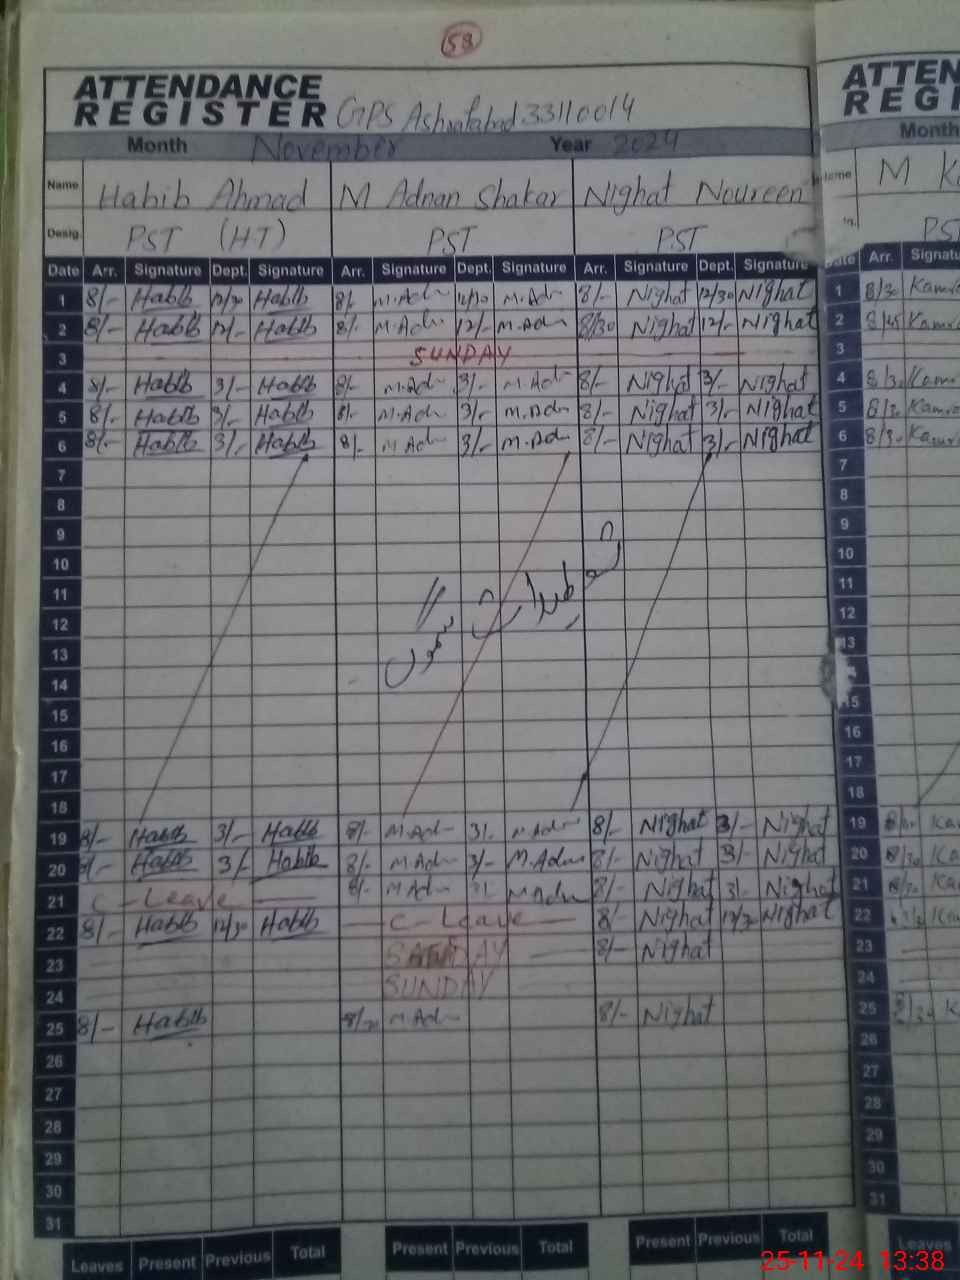 58
ATTENDANCE ATTEN
REGISTER GPS Ashrafabad 33110014 REGI
Month November Year 2024 Month
Name Habib Ahmad M Adnan Shakar Nighat Noureen Name M
Desig. PST (HT) PST PST PST
Date Arr. Signature Dept. Signature Arr. Signature Dept. Signature Arr. Signature Dept. Signature Date Arr. Signature
1 8/- Habib 12/30 Habib 8/- M.Adn 12/30 M.Adn 8/- Nighat 12/30 Nighat 1 8/30
2 8/- Habib 12/- Habib 8/- M.Adn 12/- M.Adn 8/30 Nighat 12/- Nighat 2 8/45
3 SUNDAY 3
4 8/- Habib 3/- Habib 8/- M.Adn 3/- M.Adn 8/- Nighat 3/- Nighat 4
5 8/- Habib 3/- Habib 8/- M.Adn 3/- M.Adn 8/- Nighat 3/- Nighat 5
6 8/- Habib 3/- Habib 8/- M.Adn 3/- M.Adn 8/- Nighat 3/- Nighat 6
7 7
8 8
9 9
10 10
11 11
12 تعطیلات سموگ 12
13 13
14
15 15
16 16
17 17
18 18
19 8/- Habib 3/- Habib 8/- M.Adn 3/- M.Adn 8/- Nighat 3/- Nighat 19
20 8/- Habib 3/- Habib 8/- M.Adn 3/- M.Adn 8/- Nighat 3/- Nighat 20 8/30
21 C-Leave 8/- M.Adn 3/- M.Adn 8/- Nighat 3/- Nighat 21
22 8/- Habib 12/30 Habib C-Leave 8/- Nighat 12/30 Nighat 22
23 8/- Nighat 23
24 SUNDAY 24
25 8/- Habib 8/30 M.Adn 8/- Nighat 25
26 26
27 27
28 28
29 29
30 30
31 31
Leaves Present Previous Total Present Previous Total Present Previous Total Leaves
25-11-24 13:38